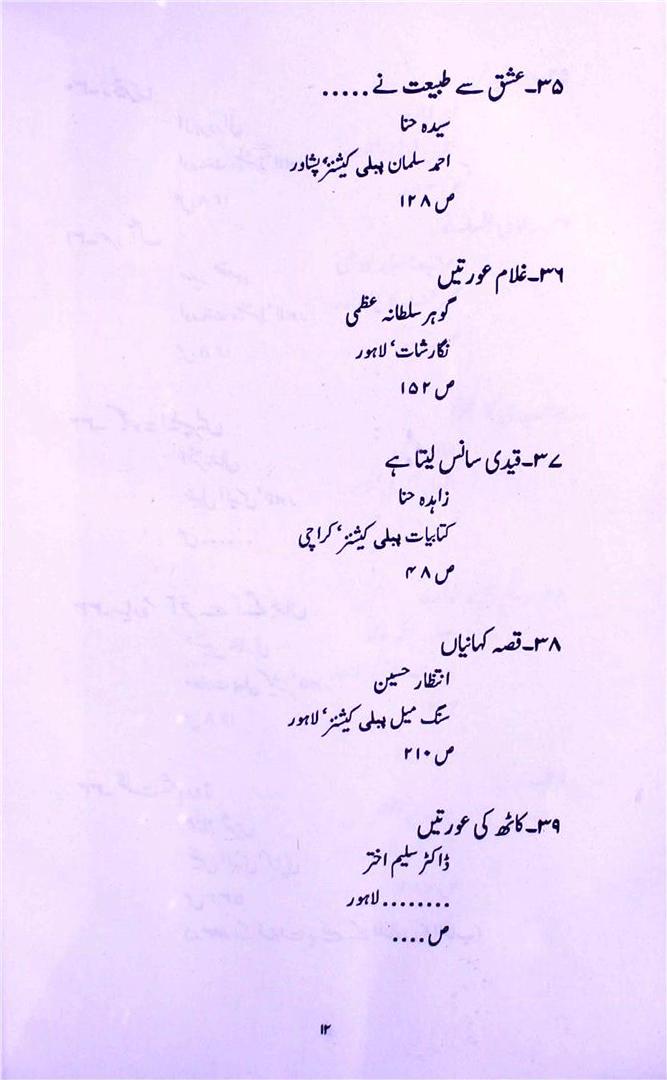 ۳۵۔عشق سے طبیعت نے.....
سیدہ حنا
احمد سلمان پبلی کیشنز‘ پشاور
ص ۱۲۸
۳۶۔غلام عورتیں
گوہر سلطانہ عظمی
نگارشات‘ لاہور
ص ۱۵۲
۳۷۔قیدی سانس لیتا ہے
زاہدہ حنا
کتابیات پبلی کیشنز‘ کراچی
ص ۴۸
۳۸۔قصہ کہانیاں
انتظار حسین
سنگ میل پبلی کیشنز‘ لاہور
ص ۲۱۰
۳۹۔کاٹھ کی عورتیں
ڈاکٹر سلیم اختر
........لاہور
ص....
۱۲